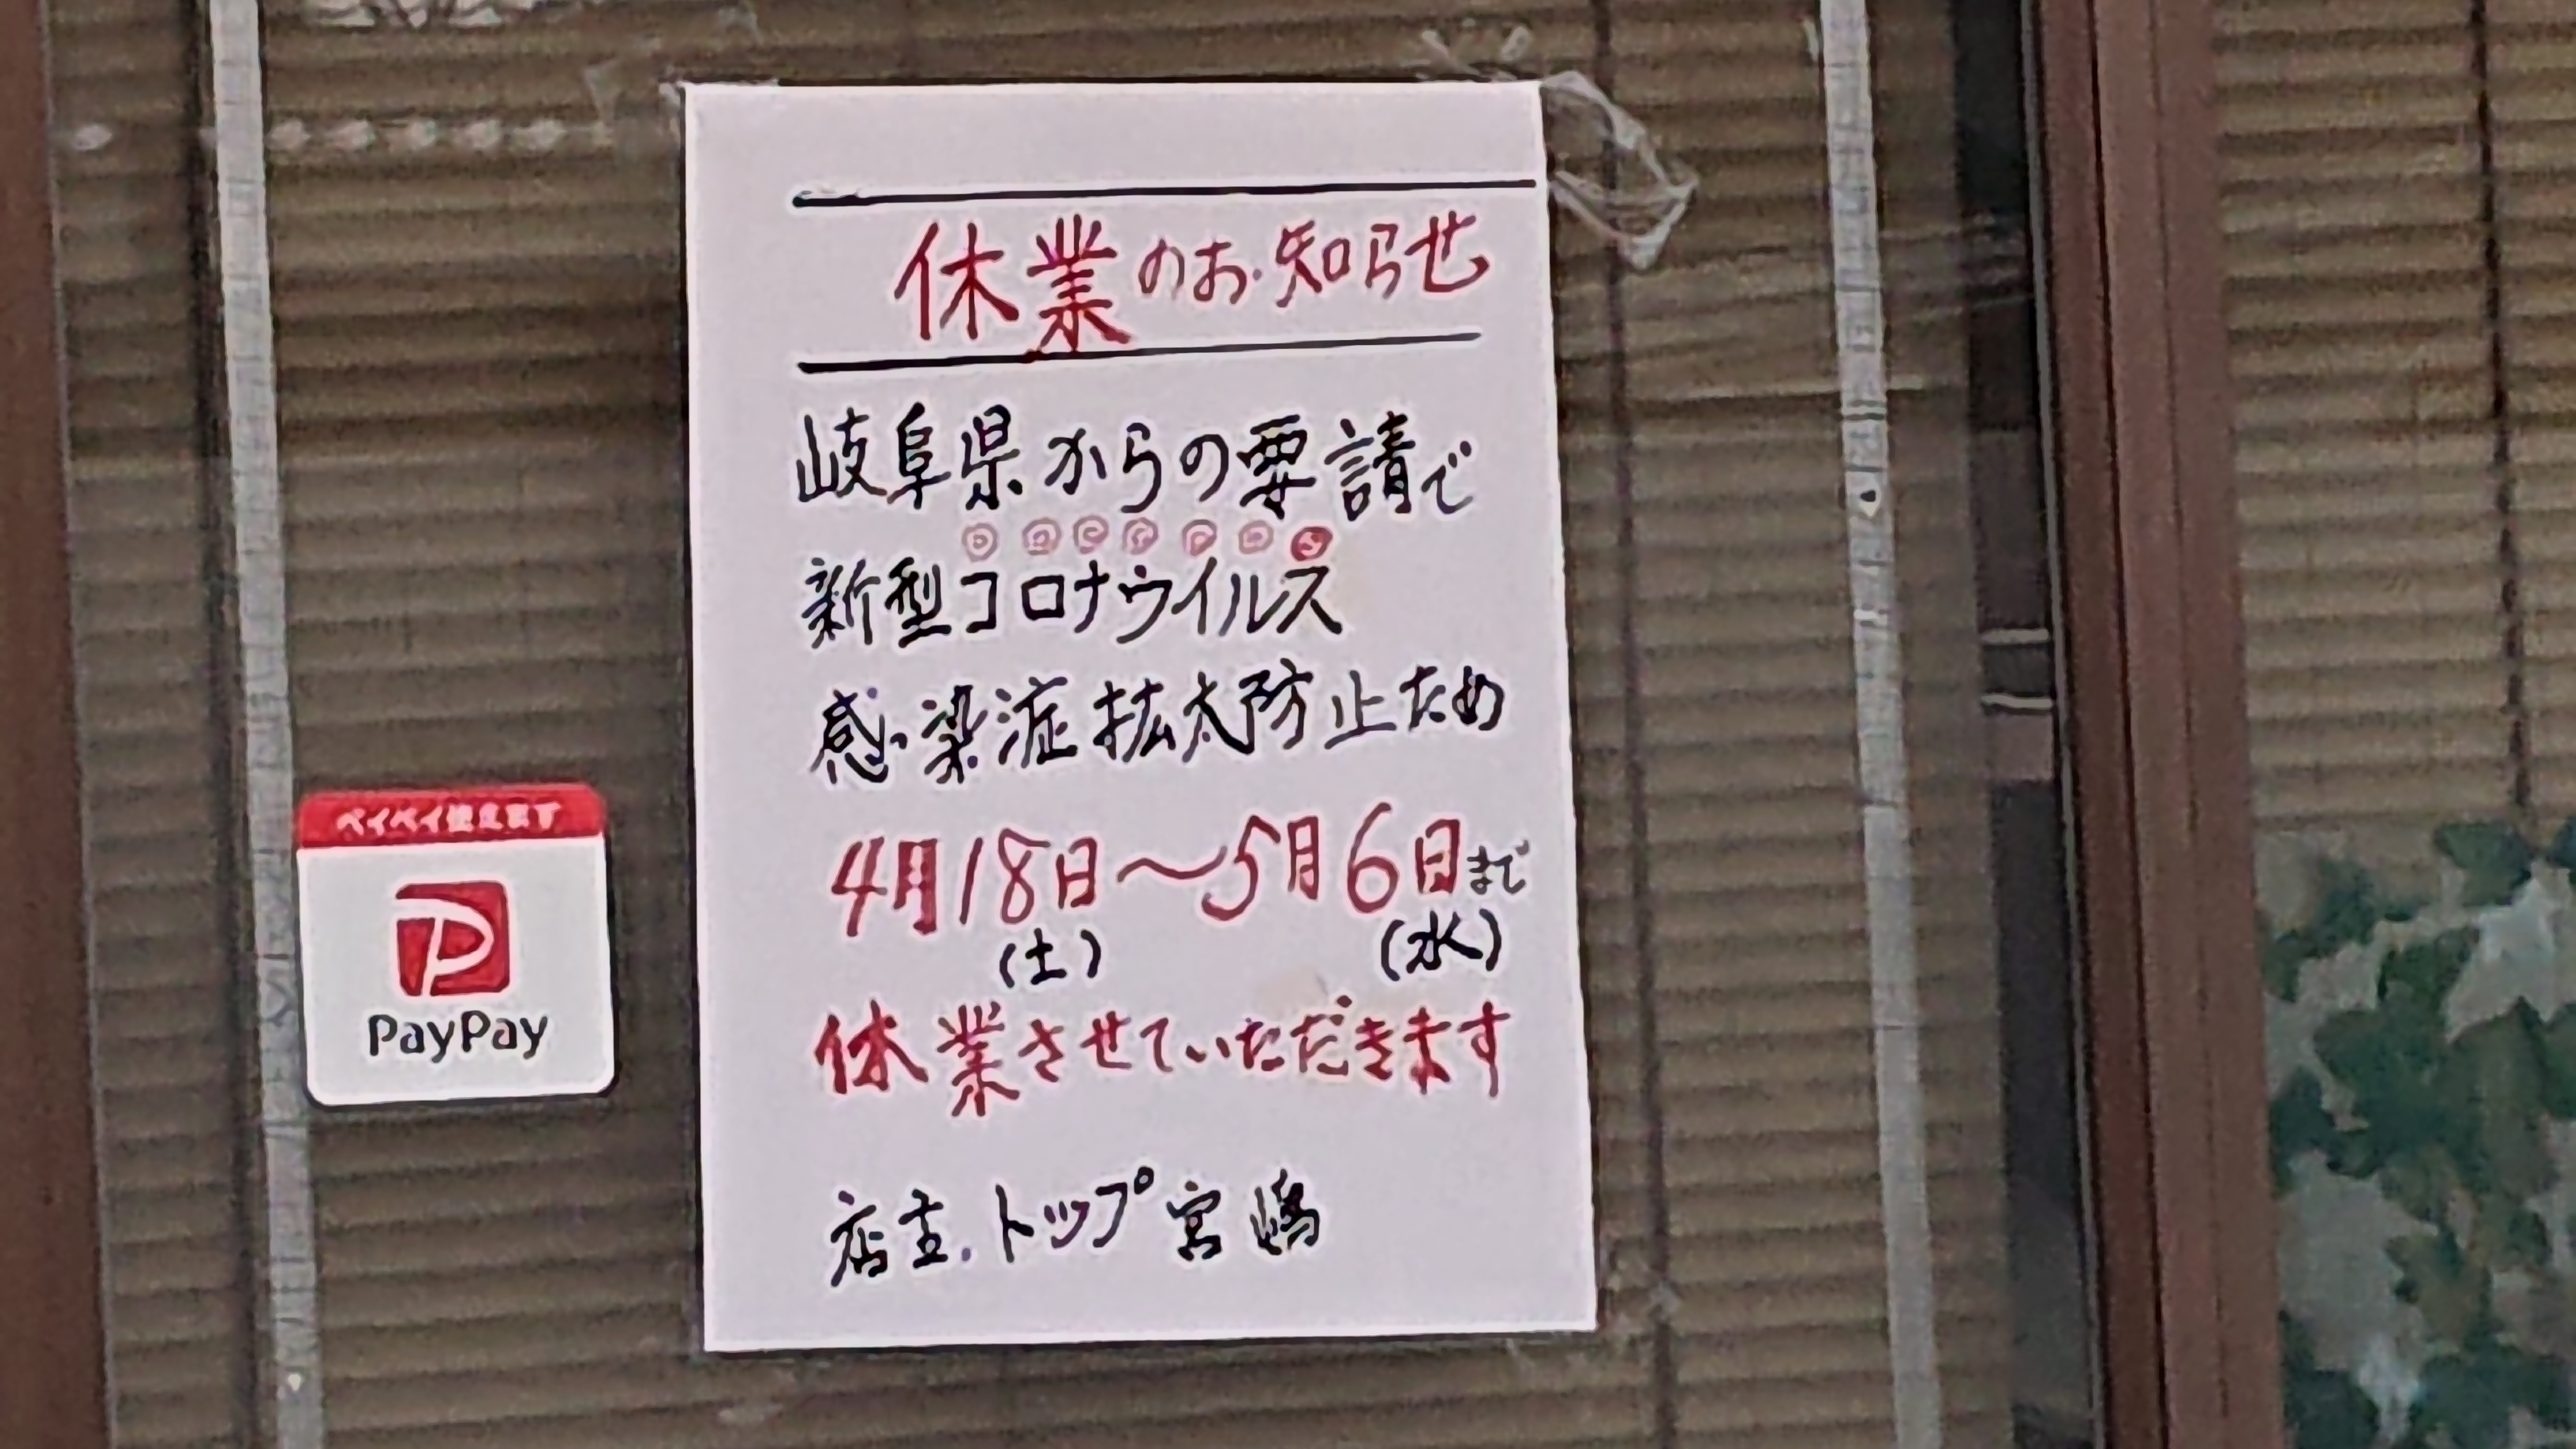 休業のお知らせ
岐阜県からの要請で
新型コロナウイルス
感染症拡大防止ため
4月18日〜5月6日まで
(土) (水)
休業させていただきます
店主.トップ宮嶋
ペイペイ使えます
PayPay